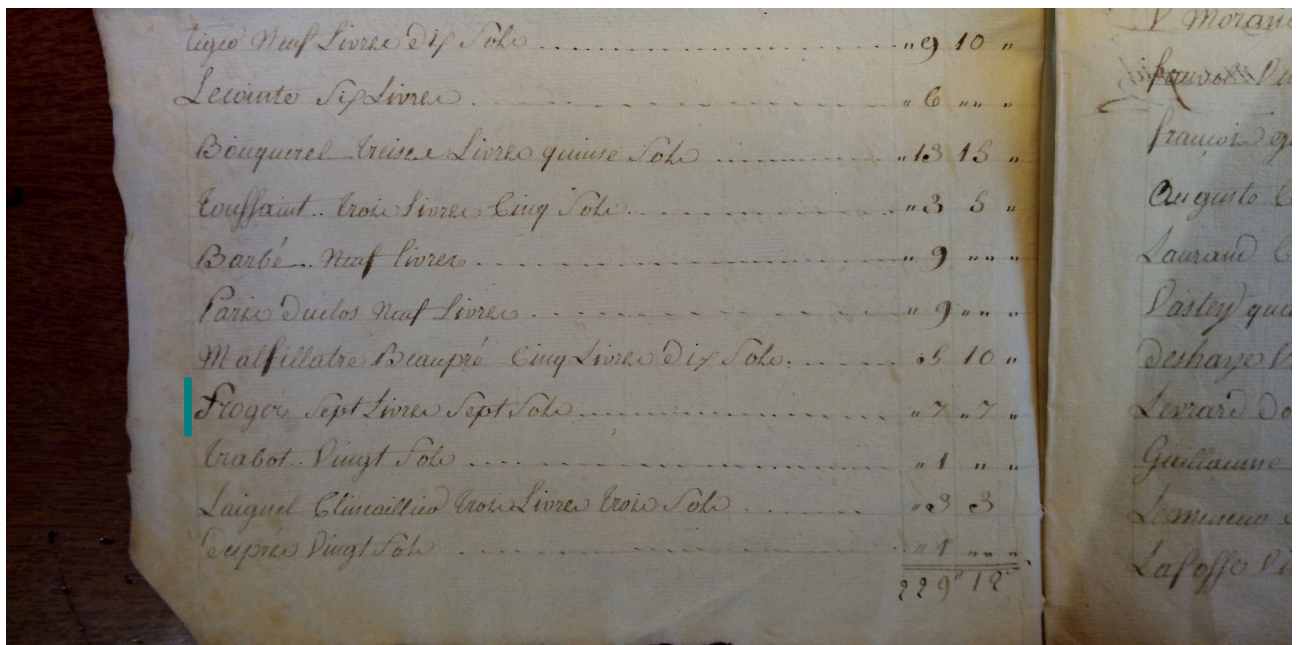 tigeo Neuf Livres Dix Sols „ 9 10 „
Lecointe Six Livres „ 6 „„ „
Bouquerel treise Livres quinse Sols „ 13 15 „
toussaint trois Livres Cinq Sols „ 3 5 „
Barbé Neuf livres „ 9 „„ „
Paris Duclos Neuf Livres „ 9 „„ „
Malfillatre Beaupré Cinq Livres Dix Sols „ 5 10 „
Froger Sept Livres Sept Sols „ 7 „ 7 „
trabot Vingt Sols „ 1 „ „
Laignel trois Livres trois Sols „ 3 3
Duprés Vingt Sols „ 1 „„ „
229 „ 12
V Morand
francois
Auguste
Laurand
Vastey
deshaye
Levrard
Guillaume
Lafosse